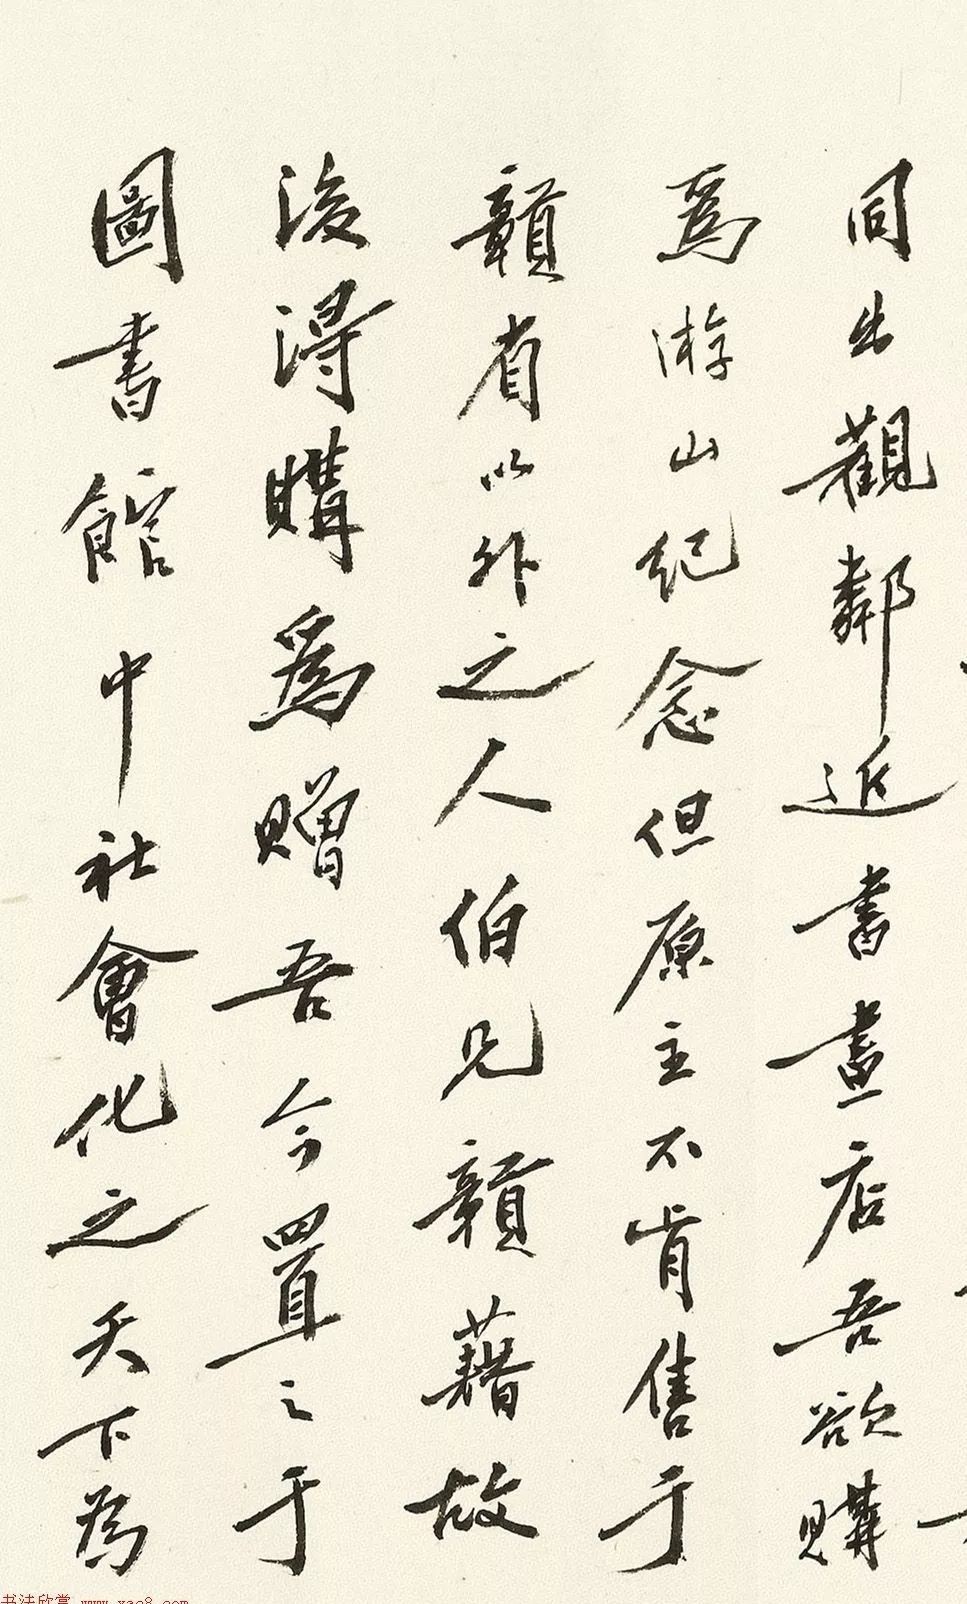 同出觀鄰近書畫店吾欲購
爲游山纪念但原主不肯售于
贛省以外之人伯兄贛藉故
後得購爲贈吾今置之于
圖書館中社會化之天下為
书法欣赏 www.yac8.com